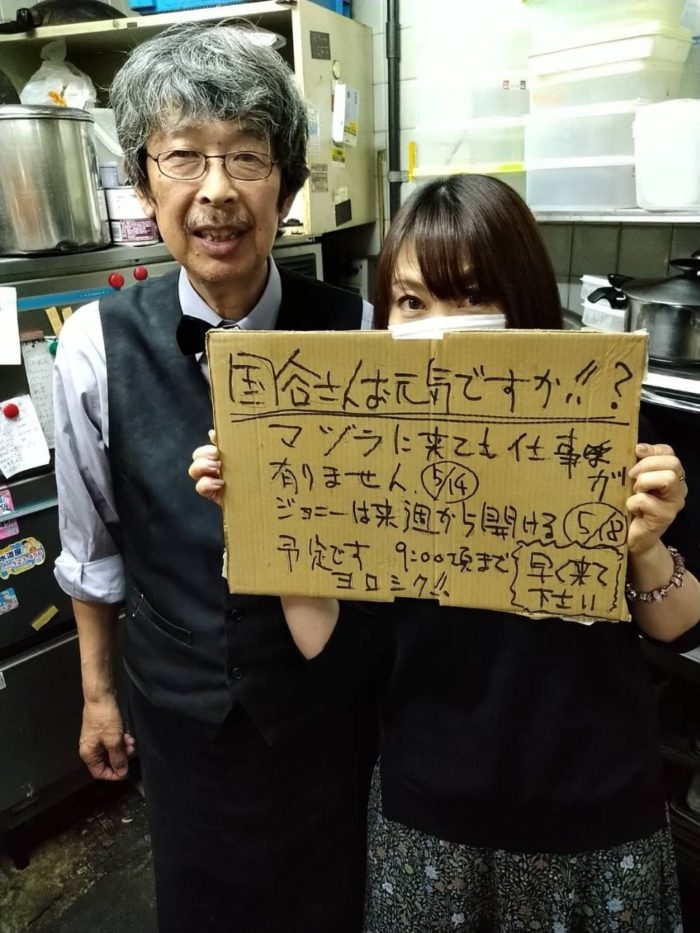 国谷さんお元気ですか!!?
マヅラに来ても仕事が
有りません。5/14
ジョニーは来週から開ける 5/18
予定です 9:00項まで
ヨロシク!!
早く来て
下さい